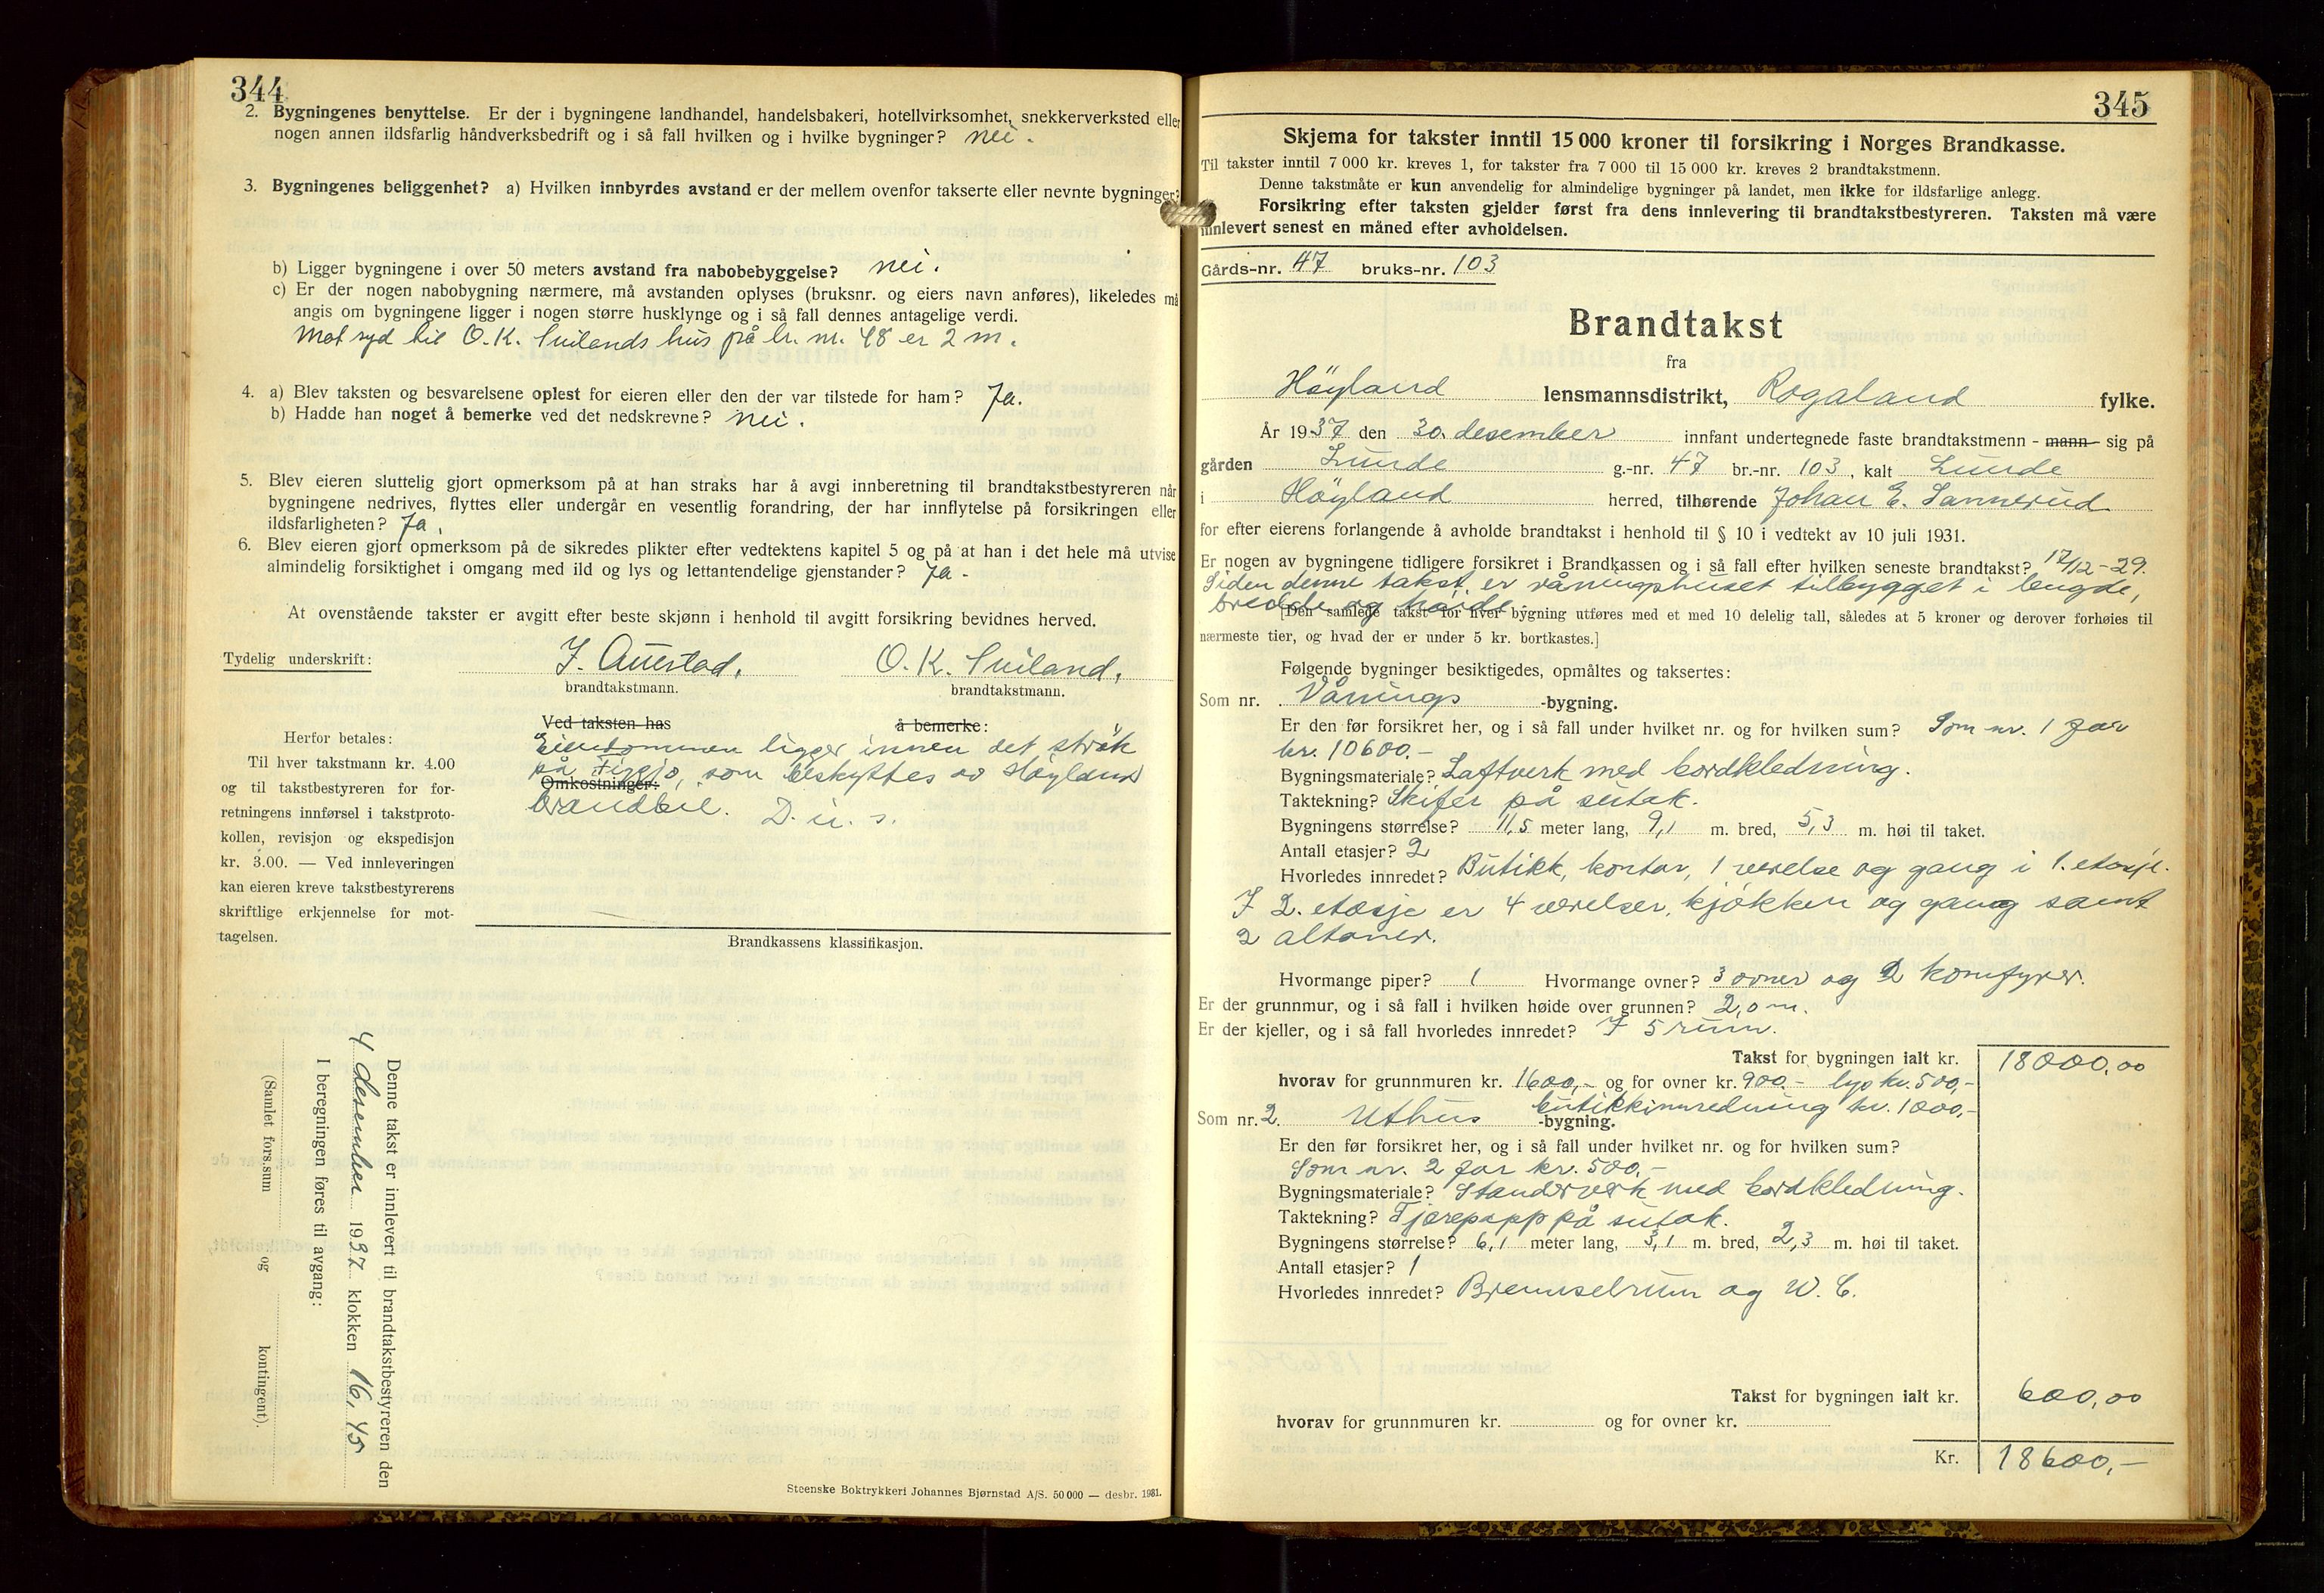 344
2. Bygningenes benyttelse. Er der i bygningene landhandel, handelsbakeri, hotellvirksomhet, snekkerverksted eller
nogen annen ildsfarlig håndverksbedrift og i så fall hvilken og i hvilke bygninger? nei.
3. Bygningenes beliggenhet? a) Hvilken innbyrdes avstand er der mellem ovenfor takserte eller nevnte bygninger?
b) Ligger bygningene i over 50 meters avstand fra nabobebyggelse? nei.
c) Er der nogen nabobygning nærmere, må avstanden oplyses (bruksnr. og eiers navn anføres), likeledes må
angis om bygningene ligger i nogen større husklynge og i så fall dennes antagelige verdi.
Mot syd til O. K. Svilands hus på br. nr. 48 er 2 m.
4. a) Blev taksten og besvarelsene oplest for eieren eller den der var tilstede for ham? Ja.
b) Hadde han noget å bemerke ved det nedskrevne? nei.
5. Blev eieren sluttelig gjort opmerksom på at han straks har å avgi innberetning til brandtakstbestyreren når
bygningene nedrives, flyttes eller undergår en vesentlig forandring, der har innflytelse på forsikringen eller
ildsfarligheten? Ja.
6. Blev eieren gjort opmerksom på de sikredes plikter efter vedtektens kapitel 5 og på at han i det hele må utvise
almindelig forsiktighet i omgang med ild og lys og lettantendelige gjenstander? Ja.
At ovenstående takster er avgitt efter beste skjønn i henhold til avgitt forsikring bevidnes herved.
Tydelig underskrift: J. Auestad, O. K. Sviland,
brandtakstmann. brandtakstmann.
Ved taksten has å bemerke:
Eiendommen ligger innen det strøk
på Figgjo, som beskyttes av Høyland
Omkostninger:
brandbil. D. u. s.
Herfor betales:
Til hver takstmann kr. 4.00
og til takstbestyreren for for-
retningens innførsel i takstproto-
kollen, revisjon og ekspedisjon
kr. 3.00. — Ved innleveringen
kan eieren kreve takstbestyrerens
skriftlige erkjennelse for mot-
tagelsen.
Brandkassens klassifikasjon.
Denne takst er innlevert til brandtakstbestyreren den
4 desember 1937 klokken 16,45
I beregningen føres til avgang:
(Samlet fors.sum og kontingent).
Steenske Boktrykkeri Johannes Bjørnstad A/S. 50 000 — desbr. 1931.
345
Skjema for takster inntil 15 000 kroner til forsikring i Norges Brandkasse.
Til takster inntil 7 000 kr. kreves 1, for takster fra 7 000 til 15 000 kr. kreves 2 brandtakstmenn.
Denne takstmåte er kun anvendelig for almindelige bygninger på landet, men ikke for ildsfarlige anlegg.
Forsikring efter taksten gjelder først fra dens innlevering til brandtakstbestyreren. Taksten må være
innlevert senest en måned efter avholdelsen.
Gårds-nr. 47 bruks-nr. 103
Brandtakst
fra
Høyland lensmannsdistrikt, Rogaland fylke.
År 1937 den 30. desember innfant undertegnede faste brandtakstmenn - mann - sig på
gården Lunde g.-nr. 47 br.-nr. 103, kalt Lunde
i Høyland herred, tilhørende Johan E. Sannerud
for efter eierens forlangende å avholde brandtakst i henhold til § 10 i vedtekt av 10 juli 1931.
Er nogen av bygningene tidligere forsikret i Brandkassen og i så fall efter hvilken seneste brandtakst? 17/12-29.
Siden denne takst er våningshuset tilbygget i lengde,
bredde og høide.
[Den samlede takst for hver bygning utføres med et med 10 delelig tall, således at 5 kroner og derover forhøies til
nærmeste tier, og hvad der er under 5 kr. bortkastes.]
Følgende bygninger besiktigedes, opmåltes og taksertes:
Som nr. Vånings -bygning.
Er den før forsikret her, og i så fall under hvilket nr. og for hvilken sum? Som nr. 1 for
kr. 10600.-
Bygningsmateriale? Laftverk med bordkledning.
Taktekning? Skifer på sutak.
Bygningens størrelse? 11,5 meter lang, 9,1 m. bred, 5,3 m. høi til taket.
Antall etasjer? 2
Hvorledes innredet? Butikk, kontor, 1 værelse og gang i 1. etasje.
I 2. etasje er 4 værelser, kjøkken og gang samt
2 altaner.
Hvormange piper? 1 Hvormange ovner? 3 ovner og 2 komfyrer.
Er der grunnmur, og i så fall i hvilken høide over grunnen? 2,0 m.
Er der kjeller, og i så fall hvorledes innredet? I 5 rum.
Takst for bygningen ialt kr. 18000,00
hvorav for grunnmuren kr. 1600,- og for ovner kr. 900.- lys kr. 500,-
butikkinnredning kr. 1000,-
Som nr. 2. Uthus -bygning.
Er den før forsikret her, og i så fall under hvilket nr. og for hvilken sum?
Som nr. 2 for kr. 500,-
Bygningsmateriale? Stenderverk med bordkledning.
Taktekning? Tjærepapp på sutak.
Bygningens størrelse? 6,1 meter lang, 3,1 m. bred, 2,3 m. høi til taket.
Antall etasjer? 1
Hvorledes innredet? Brenselrum og W. C.
Takst for bygningen ialt kr. 600,00
hvorav for grunnmuren kr. og for ovner kr.
Kr. 18600,-